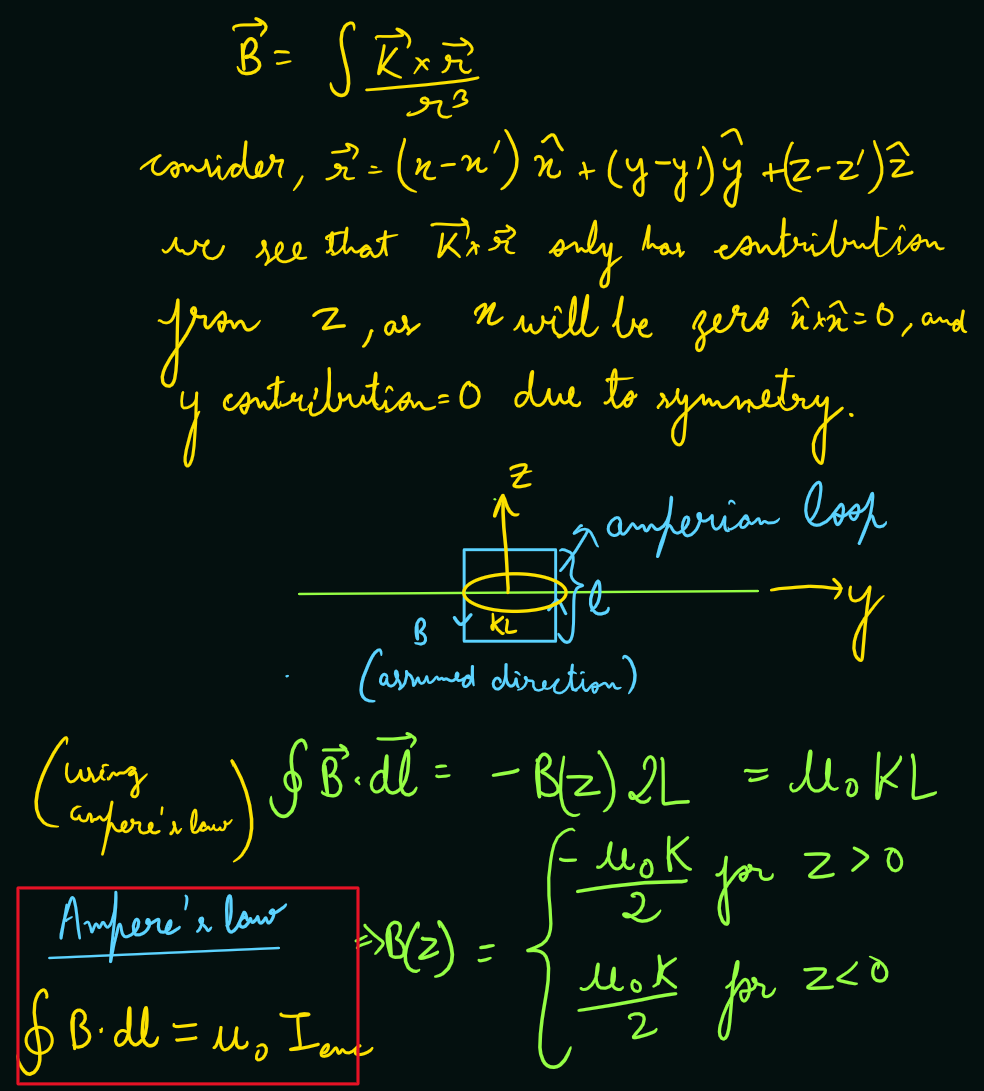 B⃗ = ∫ K⃗ × r⃗ / r³
consider, r⃗ = (x-x') x̂ + (y-y') ŷ + (z-z') ẑ
we see that K⃗ × r⃗ only has contribution
from z, as x will be zero x̂×x̂ = 0, and
y contribution = 0 due to symmetry.
z
amperian loop
y
l
B
KL
(assumed direction)
(using ampere's law) ∮ B⃗·dl⃗ = - B(z) 2L = μ₀ KL
Ampere's law
∮ B·dl = μ₀ Ienc
⇒ B(z) = { - μ₀K / 2 for z > 0
μ₀K / 2 for z < 0